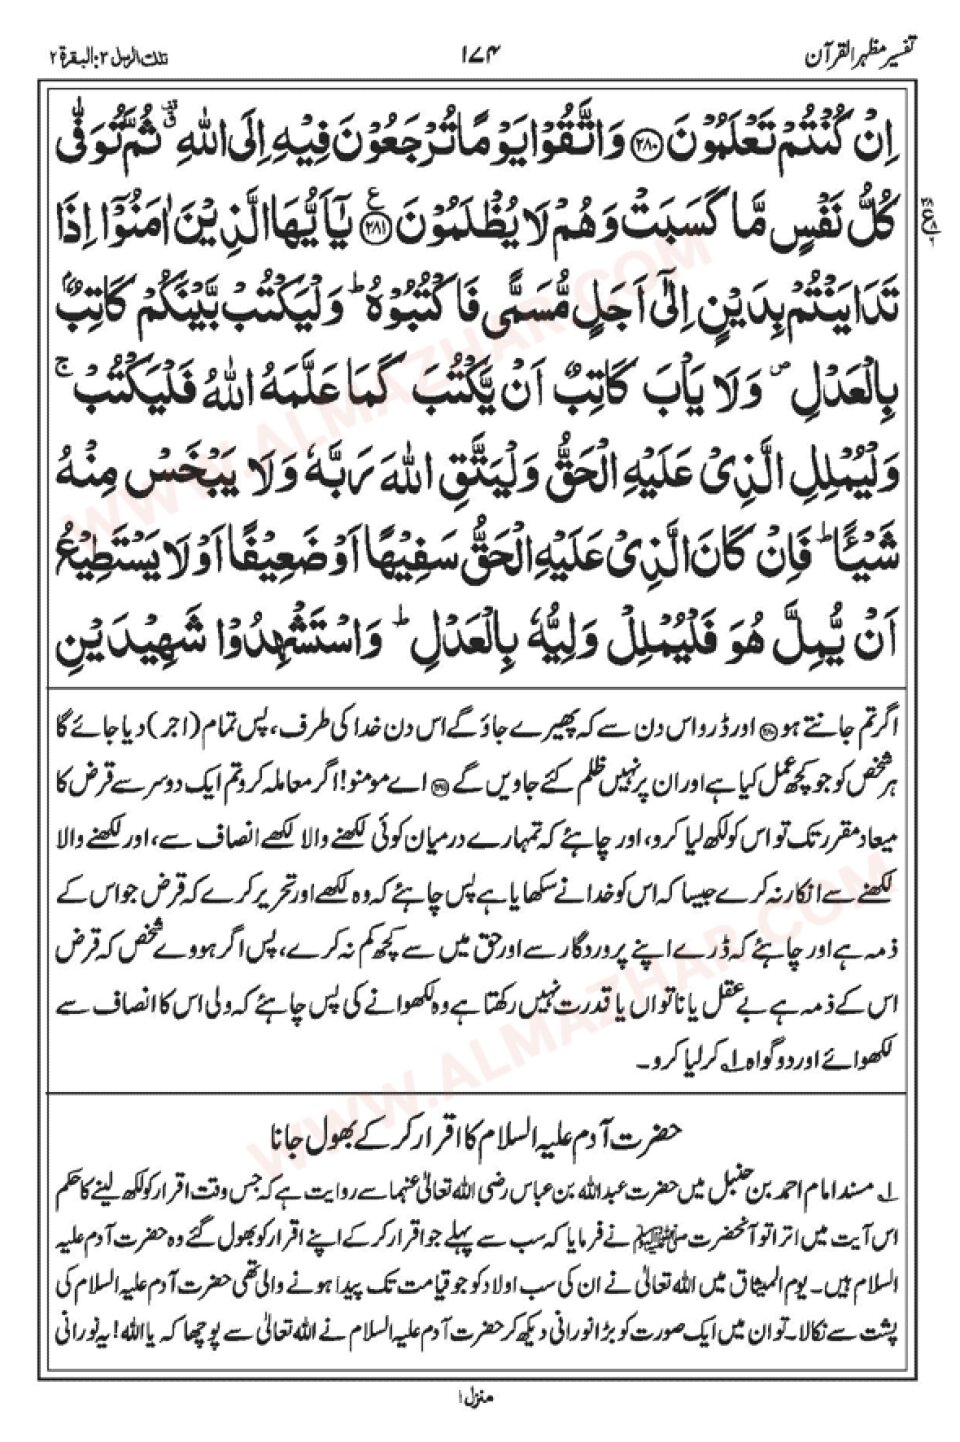 تفسیر مظہر القرآن
۱۷۴
تلک الرسل ۳: البقرۃ ۲
اِنْ كُنْتُمْ تَعْلَمُوْنَ ﴿۲۸۰﴾ وَاتَّقُوْا يَوْمًا تُرْجَعُوْنَ فِيْهِ اِلَى اللّٰهِ ۗ ثُمَّ تُوَفّٰى
كُلُّ نَفْسٍ مَّا كَسَبَتْ وَهُمْ لَا يُظْلَمُوْنَ ﴿۲۸۱﴾ يٰٓاَيُّهَا الَّذِيْنَ اٰمَنُوْٓا اِذَا
تَدَايَنْتُمْ بِدَيْنٍ اِلٰٓى اَجَلٍ مُّسَمًّى فَاكْتُبُوْهُ ؕ وَلْيَكْتُبْ بَّيْنَكُمْ كَاتِبٌۢ
بِالْعَدْلِ ۪ وَلَا يَاْبَ كَاتِبٌ اَنْ يَّكْتُبَ كَمَا عَلَّمَهُ اللّٰهُ فَلْيَكْتُبْ ۚ
وَلْيُمْلِلِ الَّذِىْ عَلَيْهِ الْحَقُّ وَلْيَتَّقِ اللّٰهَ رَبَّهٗ وَلَا يَبْخَسْ مِنْهُ
شَيْـًٔا ؕ فَاِنْ كَانَ الَّذِىْ عَلَيْهِ الْحَقُّ سَفِيْهًا اَوْ ضَعِيْفًا اَوْ لَا يَسْتَطِيْعُ
اَنْ يُّمِلَّ هُوَ فَلْيُمْلِلْ وَلِيُّهٗ بِالْعَدْلِ ؕ وَاسْتَشْهِدُوْا شَهِيْدَيْنِ
اگر تم جانتے ہو ﴿۲۸۰﴾ اور ڈرو اس دن سے کہ پھیرے جاؤ گے اس دن خدا کی طرف، پس تمام (اجر) دیا جائے گا
ہر شخص کو جو کچھ عمل کیا ہے اور ان پر نہیں ظلم کئے جاویں گے ﴿۲۸۱﴾ اے مومنو! اگر معاملہ کرو تم ایک دوسرے سے قرض کا
میعاد مقرر تک تو اس کو لکھ لیا کرو، اور چاہئے کہ تمہارے درمیان کوئی لکھنے والا لکھے انصاف سے، اور لکھنے والا
لکھنے سے انکار نہ کرے جیسا کہ اس کو خدا نے سکھایا ہے پس چاہئے کہ وہ لکھے اور تحریر کرے کہ قرض جو اس کے
ذمہ ہے اور چاہئے کہ ڈرے اپنے پروردگار سے اور حق میں سے کچھ کم نہ کرے، پس اگر ہووے شخص کہ قرض
اس کے ذمہ ہے بے عقل یا ناتواں یا قدرت نہیں رکھتا ہے وہ لکھوانے کی پس چاہئے کہ ولی اس کا انصاف سے
لکھوائے اور دو گواہ ۱؎ کر لیا کرو۔
حضرت آدم علیہ السلام کا اقرار کر کے بھول جانا
۱؎ مسند امام احمد بن حنبل میں حضرت عبداللہ بن عباس رضی اللہ تعالیٰ عنہما سے روایت ہے کہ جس وقت اقرار کو لکھ لینے کا حکم
اس آیت میں اترا تو آنحضرت ﷺ نے فرمایا کہ سب سے پہلے جو اقرار کر کے اپنے اقرار کو بھول گئے وہ حضرت آدم علیہ
السلام ہیں۔ یوم المیثاق میں اللہ تعالیٰ نے ان کی سب اولاد کو جو قیامت تک پیدا ہونے والی تھی حضرت آدم علیہ السلام کی
پشت سے نکالا۔ تو ان میں ایک صورت کو بڑا نورانی دیکھ کر حضرت آدم علیہ السلام نے اللہ تعالیٰ سے پوچھا کہ یا اللہ! یہ نورانی
منزل ۱
WWW.ALMAZHAR.COM
WWW.ALMAZHAR.COM